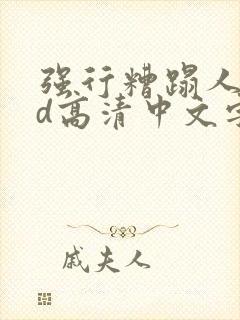 强行糟蹋人
d高清中文字
戚夫人